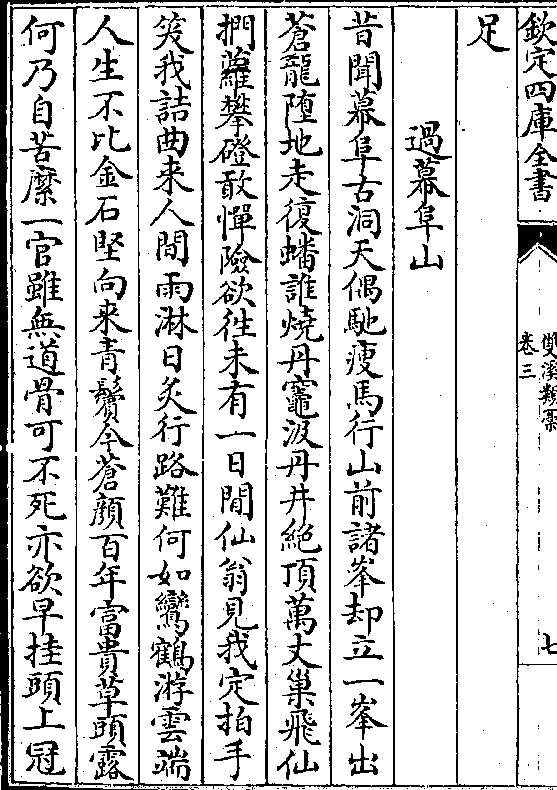 欽定四庫全書
雙溪類藁
卷三
七
足
過幕阜山
昔聞幕阜古洞天偶馳瘦馬行山前諸峯却立一峯出
蒼龍墮地走復蟠誰燒丹竈汲丹井絶頂萬丈巢飛仙
捫蘿攀磴敢憚險欲徃未有一日閒仙翁見我定拍手
笑我詰曲来人間雨淋日炙行路難何如鸞鶴游雲端
人生不比金石堅向来青鬢今蒼顔百年富貴草頭露
何乃自苦縻一官雖無道骨可不死亦欲早挂頭上冠